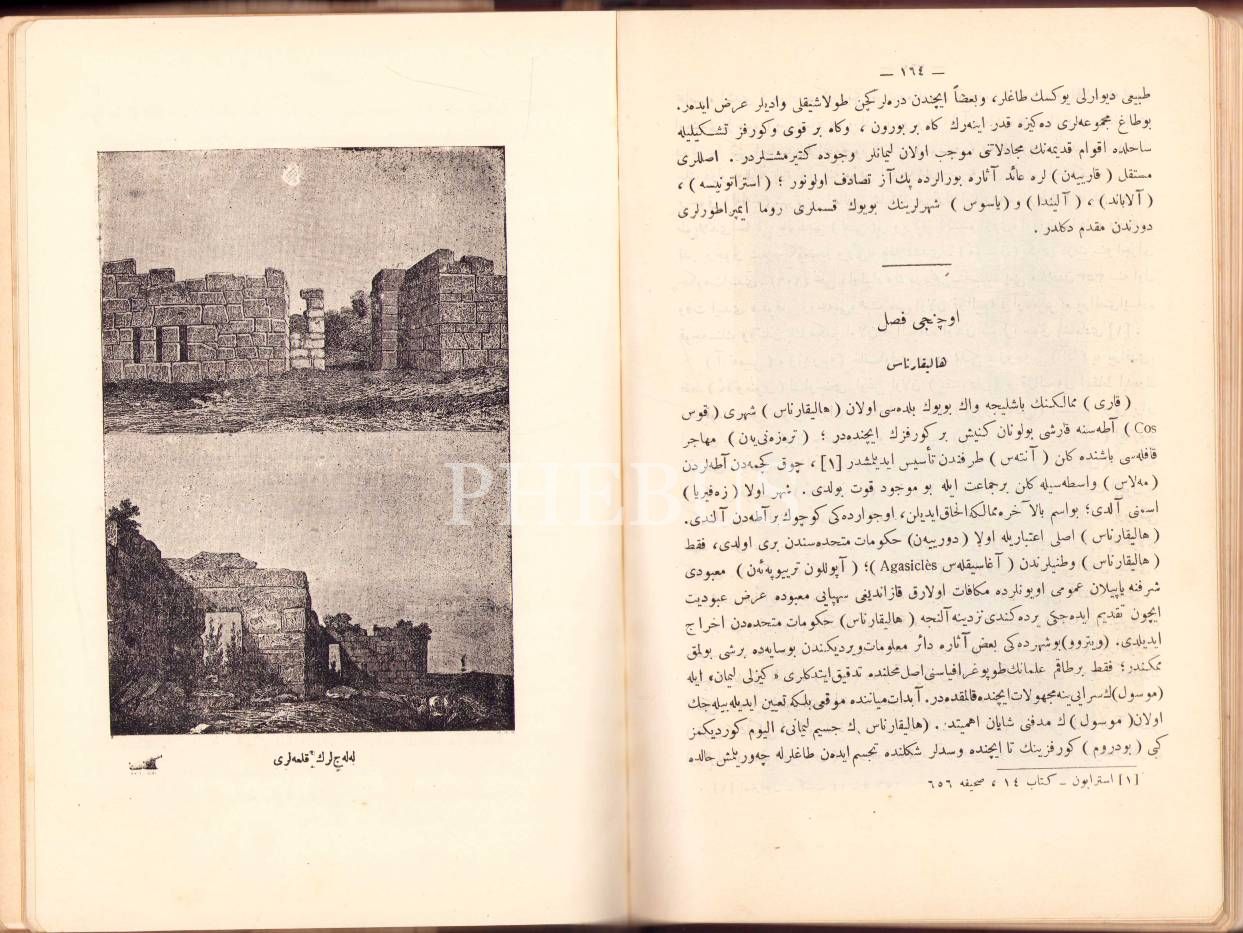 — ١٦٤ —
طبیعی دیوارلی یوكسك طاغلر، وبعضاً ایچندن دره‌لر كچن طولاشیقلی وادیلر عرض ایده‌ر.
بوطاغ مجموعه‌لری ده‌كیزه قدر اینه‌رك كاه بر بورون ، وكاه بر قوی وكورفز تشكیلیله
ساحلده اقوام قدیمه‌نك مجادلاتی موجب اولان لیمانلر وجوده كتیرمشلردر . اصللری
مستقل ( قارییه‌ن ) لره عائد آثاره بورالرده پك آز تصادف اولونور ؛ ( استراتونیسه ) ،
( آلاباند ) ، ( آلیندا ) و ( یاسوس ) شهرلرینك بویوك قسملری روما ایمپراطورلری
دورندن مقدم دكلدر .
اوچنجی فصل
هالیقارناس
( قاری ) ممالكینك باشلیجه واك بویوك بلده‌سی اولان ( هالیقارناس ) شهری ( قوس
Cos ) آطه‌سنه قارشی بولونان كنیش بر كورفزك ایچنده‌در ؛ ( تره‌زه‌نی‌یان ) مهاجر
قافله‌سی باشنده كلن ( آنته‌س ) طرفندن تأسیس ایدیلمشدر [١] ، چوق كچمه‌دن آطه‌لردن
( مه‌لاس ) واسطه‌سیله كلن برجماعت ایله بو موجود قوت بولدی . شهر اولا ( زه‌فیریا )
اسمنی آلدی؛ بواسم بالآخره ممالكه الحاق ایدیلن، اوجوارده‌كی كوچوك بر آطه‌دن آلندی.
( هالیقارناس ) اصلی اعتباریله اولا ( دورییه‌ن) حكومات متحده‌سندن بری اولدی، فقط
( هالیقارناس ) وطنیلرندن ( آغاسیقله‌س Agasiclès )؛ ( آپوللون تریبوپه‌ئه‌ن ) معبودی
شرفنه یاپیلان عمومی اویونلرده مكافات اولارق قازاندیغی سهپایی معبوده عرض عبودیت
ایچون تقدیم ایده‌جكی یرده كندی تزدینه آلنجه ( هالیقارناس) حكومات متحده‌دن اخراج
ایدیلدی. (ویتروو) بوشهرده‌كی بعض آثاره دائر معلومات ویردیكندن بوسایه‌ده برشی بولمق
ممكندر؛ فقط برطاقم علمانك طوپوغرافیاسنی اصل محلنده تدقیق ایتدكلری « كیزلی لیمان، ایله
(موسول)ك سرایی ینه مجهولات ایچنده قالمقده‌در. آبدات میاننده موقعی بلكه تعیین ایدیله‌بیله‌جك
اولان( موسول )ك مدفنی شایان اهمیتدر. (هالیقارناس )ك جسیم لیمانی، الیوم كوردیكمز
كبی ( بودروم ) كورفزینك تا ایچنده وسدلر شكلنده تجسم ایده‌ن طاغلرله چه‌وریلمش حالده
[١] استرابون – كتاب ١٤ ، صحیفه ٦٥٦
له‌له‌ج لرك قلعه‌لری
PHEBUS